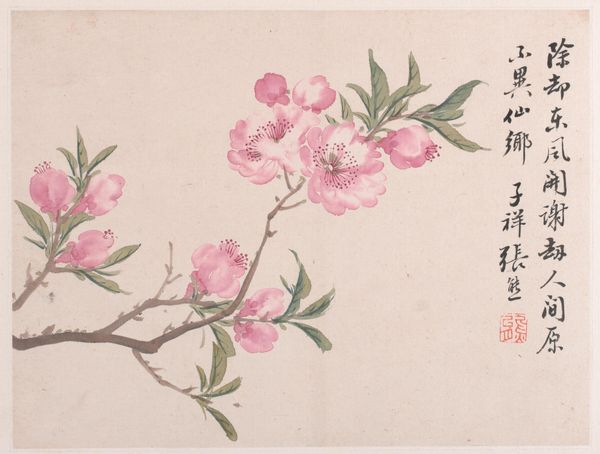 除却东风开谢劫人间原
不異仙鄉 子祥張熊